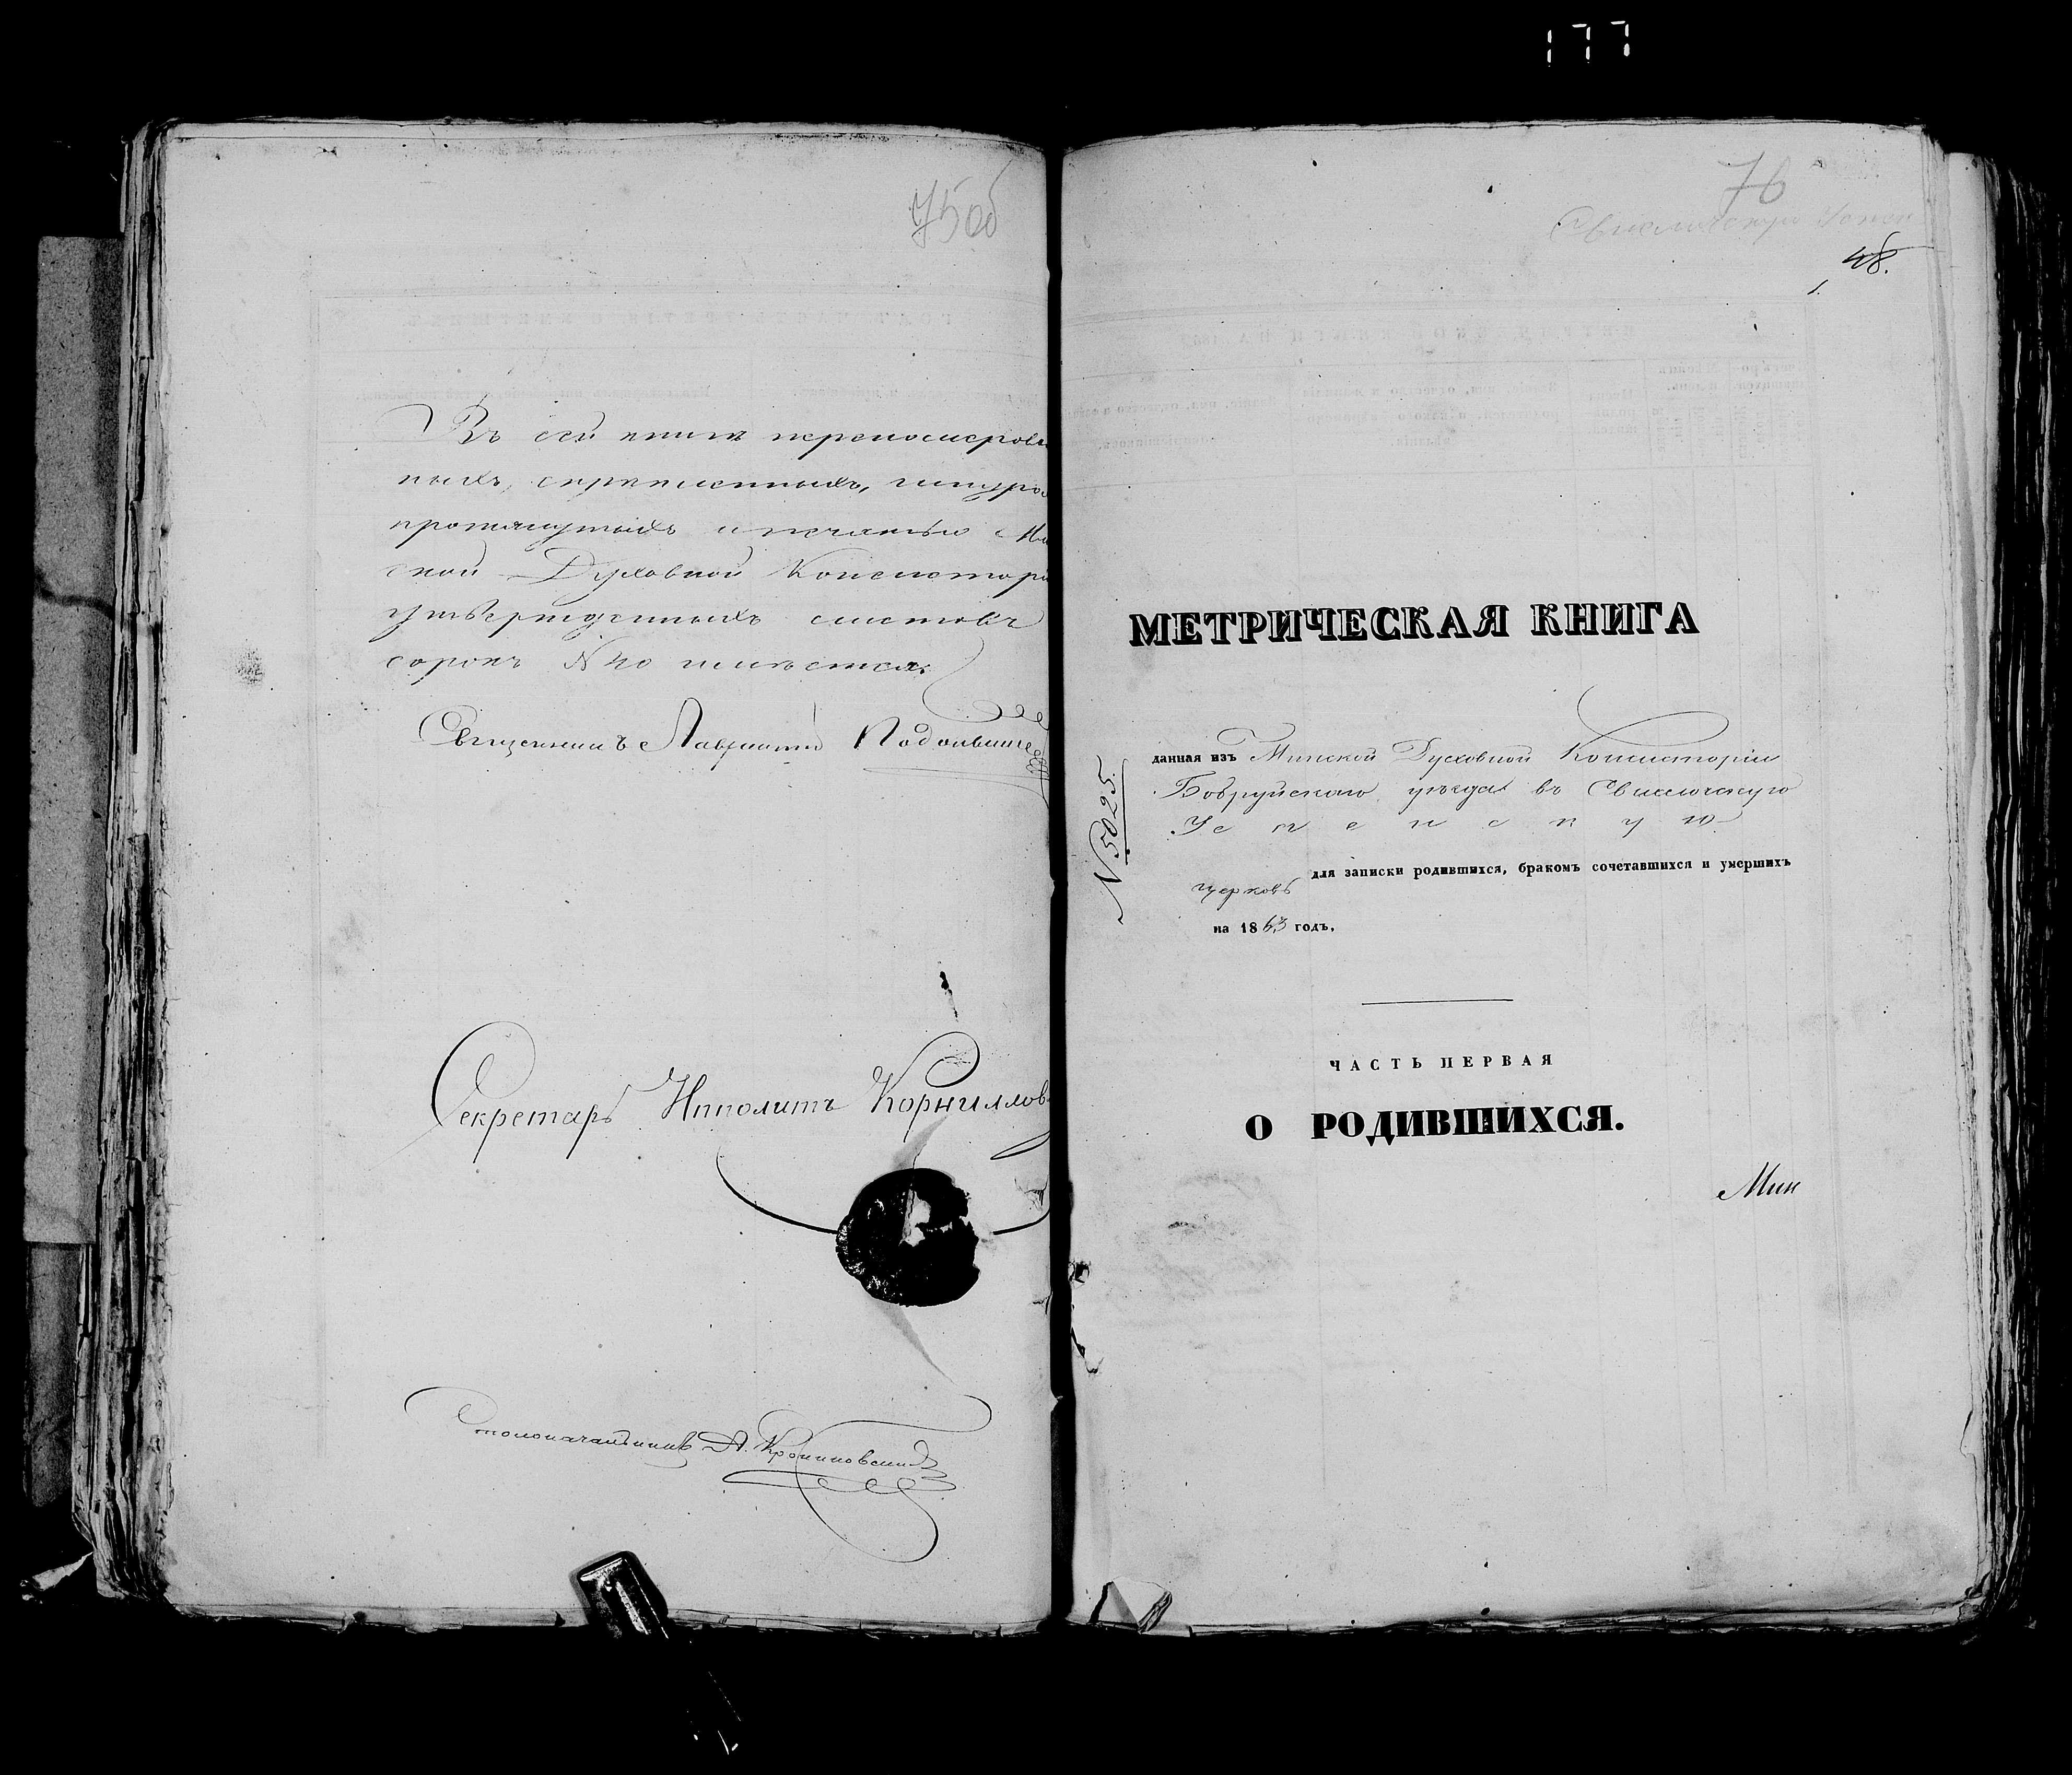 177
75об
Въ сей книгѣ перономерова
ныхъ, скрѣпленныхъ, шнуро
протянутыхъ и печатью Ми
ской Духовной Консистор
утвержденныхъ листовъ
сорокъ N 40 имѣется.
Священникъ Лаврентій
Секретарь Ипполитъ Корниллов
Столоначальникъ А.
76
Свислочскую Успен
48.
1.
МЕТРИЧЕСКАЯ КНИГА
данная изъ Минской Духовной Консисторіи
Бобруйскаго уѣзда въ Свислочскую
Успенскую
N 5025.
для записки родившихся, бракомъ сочетавшихся и умершихъ
церковь
на 1863 годъ.
ЧАСТЬ ПЕРВАЯ
О РОДИВШИХСЯ.
Мин